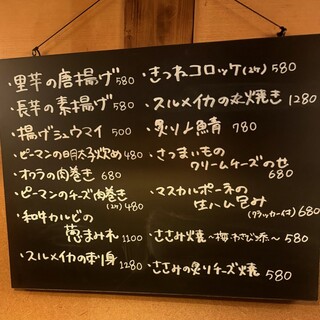 ・里芋の唐揚げ 580
・長芋の素揚げ 580
・揚げシュウマイ 500
・ピーマンの明太子炒め 480
・オクラの肉巻き 680
・ピーマンのチーズ肉巻き (2ケ) 480
・和牛カルビの
葱まみれ 1100
・スルメイカの刺身 1280
・きつねコロッケ(2ケ) 580
・スルメイカの丸焼き 1280
・炙り〆鯖 780
・さつまいもの
クリームチーズのせ 680
・マスカルポーネの
生ハム包み
(クラッカー付) 680
・ささみ焼 〜梅・わさび・添〜 580
・ささみの炙りチーズ焼 580